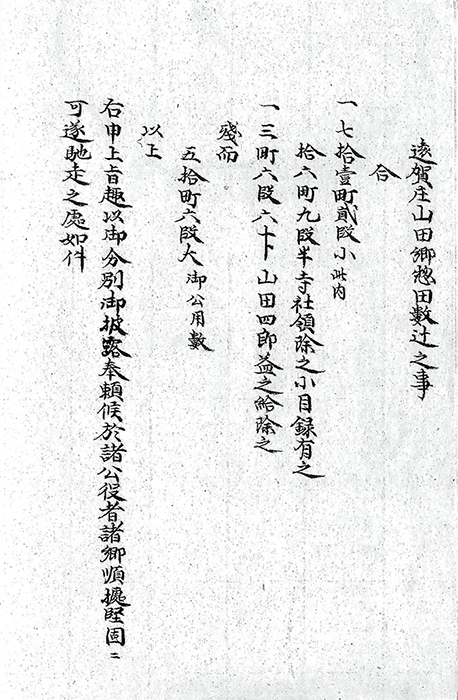 遠賀庄山田郷惣田數辻之事
合
一七拾壹町貳段小此内
拾六町九段半寺社領除之小目録有之
一三町六段六十卜山田四郎益之給除之
殘而
五拾町六段大御公用數
以上
右申上旨趣以御分別御披露奉頼候於諸公役者諸郷順據堅固ニ
可遂馳走之處如件